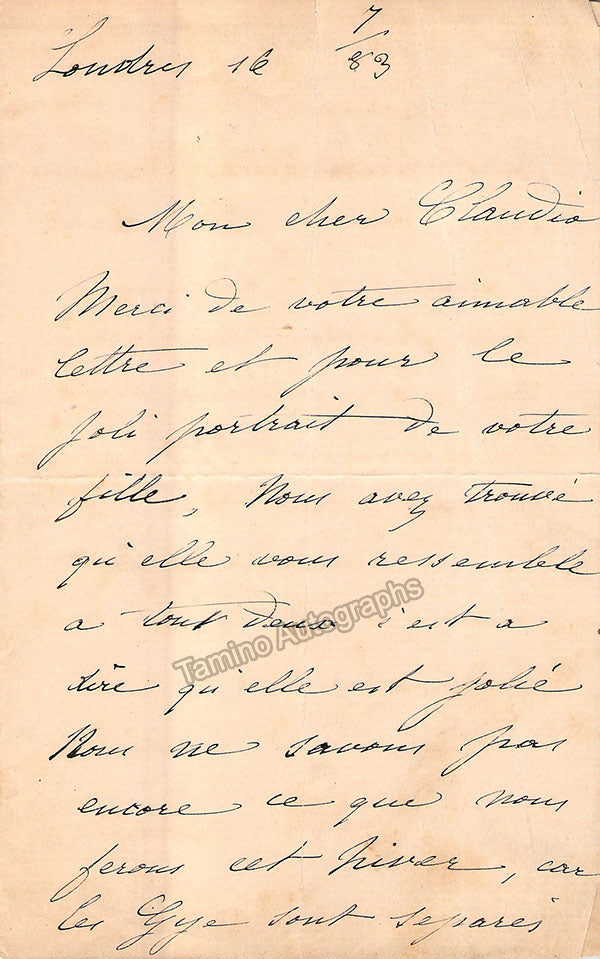 Londres 16 7/83
Mon cher Claudio
Merci de votre aimable
lettre et pour le
joli portrait de votre
fille, Nous avez trouvé
qu'elle vous ressemble
a tout deux c'est a
dire qu'elle est jolié
Nous ne savons pas
encore ce que nous
ferons cet hiver, car
les Gye sont separés
Tamino Autographs